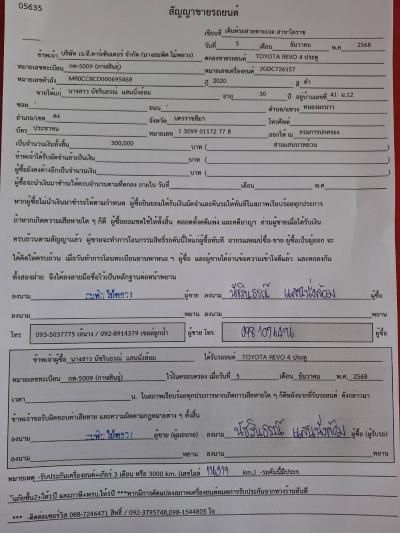 05635
สัญญาขายรถยนต์
เขียนที่ เต็นท์รถสวยตามเจต สาขาโคราช
วันที่ 5 เดือน ธันวาคม พ.ศ 2568
ข้าพเจ้า บริษัท เจ.ที.คาร์เซ็นเตอร์ จำกัด (นางสมพิศ ไม้พลวง) ตกลงขายรถยนต์ TOYOTA REVO 4 ประตู
หมายเลขทะเบียน กท-5009 (กาฬสินธุ์) หมายเลขเครื่องยนต์ 2GDC726157
หมายเลขตัวถัง MR0CC8CD000695468 ปี 2020 สี ดำ
ขายให้แก่ นางสาว นัชรินธรณ์ แสนนั่งล้อม อายุ 30 ปี อยู่บ้านเลขที่ 41 ม.12
ซอย - ถนน - ตำบล/แขวง หนองมะนาว
อำเภอ/เขต คง จังหวัด นครราชสีมา โทรศัพท์
บัตร ประชาชน หมายเลข 1 3099 01172 77 8 ออกให้ ณ กรมการปกครอง
เป็นจำนวนเงินทั้งสิ้น 300,000 บาท ( สามแสนบาทถ้วน )
ข้าพเจ้าได้รับมัดจำแล้วเป็นเงิน บาท ( )
ผู้ซื้อยังคงค้างอีกเป็นจำนวนเงิน บาท ( )
ผู้ซื้อจะนำเงินมาชำระให้ครบจำนวนตามที่ตกลง ภายใน วันที่ เดือน พ.ศ
หากผู้ซื้อไม่นำเงินมาชำระให้ตามกำหนด ผู้ซื้อยินยอมให้ริบเงินมัดจำและคืนรถให้ทันทีในสภาพเรียบร้อยทุกประการ
ถ้าหากเกิดความเสียหายใด ๆ ก็ดี ผู้ซื้อยอมชดใช้ให้ทั้งสิ้น ตลอดทั้งคดีแพ่ง และคดีอาญา ส่วนผู้ขายเมื่อได้รับเงิน
ครบถ้วนตามสัญญาแล้ว ผู้ขายจะทำการโอนกรรมสิทธิ์รถคันนี้ให้แก่ผู้ซื้อทันที
ทั้งสองฝ่าย จึงได้ลงลายมือชื่อไว้เป็นหลักฐานต่อหน้าพยาน
ลงนาม สมพิศ ไม้พลวง ผู้ขาย ลงนาม นัชรินธรณ์ แสนนั่งล้อม ผู้ซื้อ
ลงนาม พยาน ลงนาม พยาน
โทร 093-5037775 เจ๊นาง / 092-8914379 เซลล์ลูกน้ำ ผู้ขาย โทร ผู้ซื้อ
ข้าพเจ้าผู้ซื้อ นางสาว นัชรินธรณ์ แสนนั่งล้อม ได้รับรถยนต์ TOYOTA REVO 4 ประตู
หมายเลขทะเบียน กท-5009 (กาฬสินธุ์) ไว้ในครอบครอง เมื่อวันที่ 5 เดือน ธันวาคม พ.ศ. 2568
เวลา น. ในสภาพเรียบร้อยทุกประการหากเกิดการเสียหายใด ๆ ก็ดีหลังจากที่รับรถยนต์ ดังกล่าวมา
ข้าพเจ้าขอรับผิดชอบค่าเสียหาย และความผิดตามกฎหมายต่าง ๆ ทั้งสิ้น
ลงนาม สมพิศ ไม้พลวง ผู้ขาย (ผู้มอบรถ) ลงนาม นัชรินธรณ์ แสนนั่งล้อม ผู้ซื้อ (ผู้รับรถ)
ลงนาม พยาน ลงนาม พยาน
หมายเหตุ -รับประกันเครื่องยนต์+เกียร์ 3 เดือน หรือ 3000 km. (เลขไมล์ km.) -รถคันนี้มีประกัน
*** -ติดต่อเซอร์วิส 088-7246471 สิทธิ์ / 092-3795748,098-1544805 ใจ